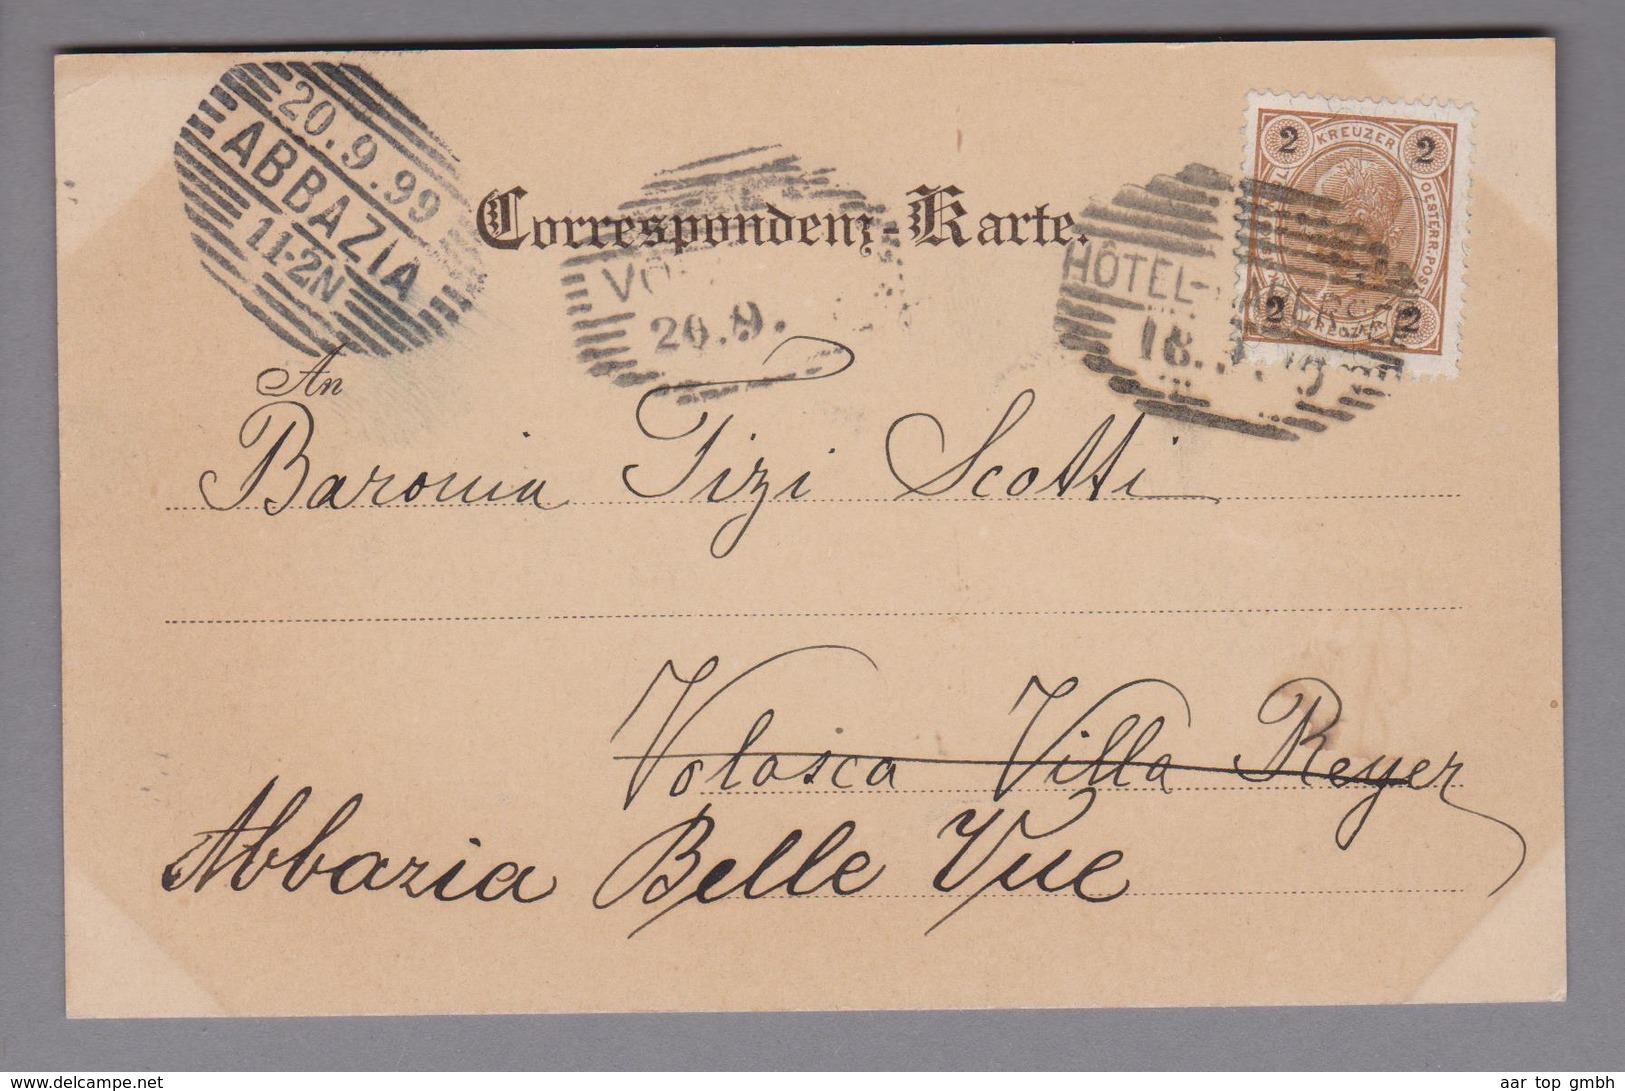 20.9.99
ABBAZIA
11-2N
Correspondenz-Karte.
20.9.
HÔTEL-
18.
2 KREUZER 2
OESTERR. POST
2 KREUZER 2
An
Baronin Tizi Scotti
Volosca Villa Reyer
Abbazia Belle Vue
www.delcampe.net
aar top gmbh